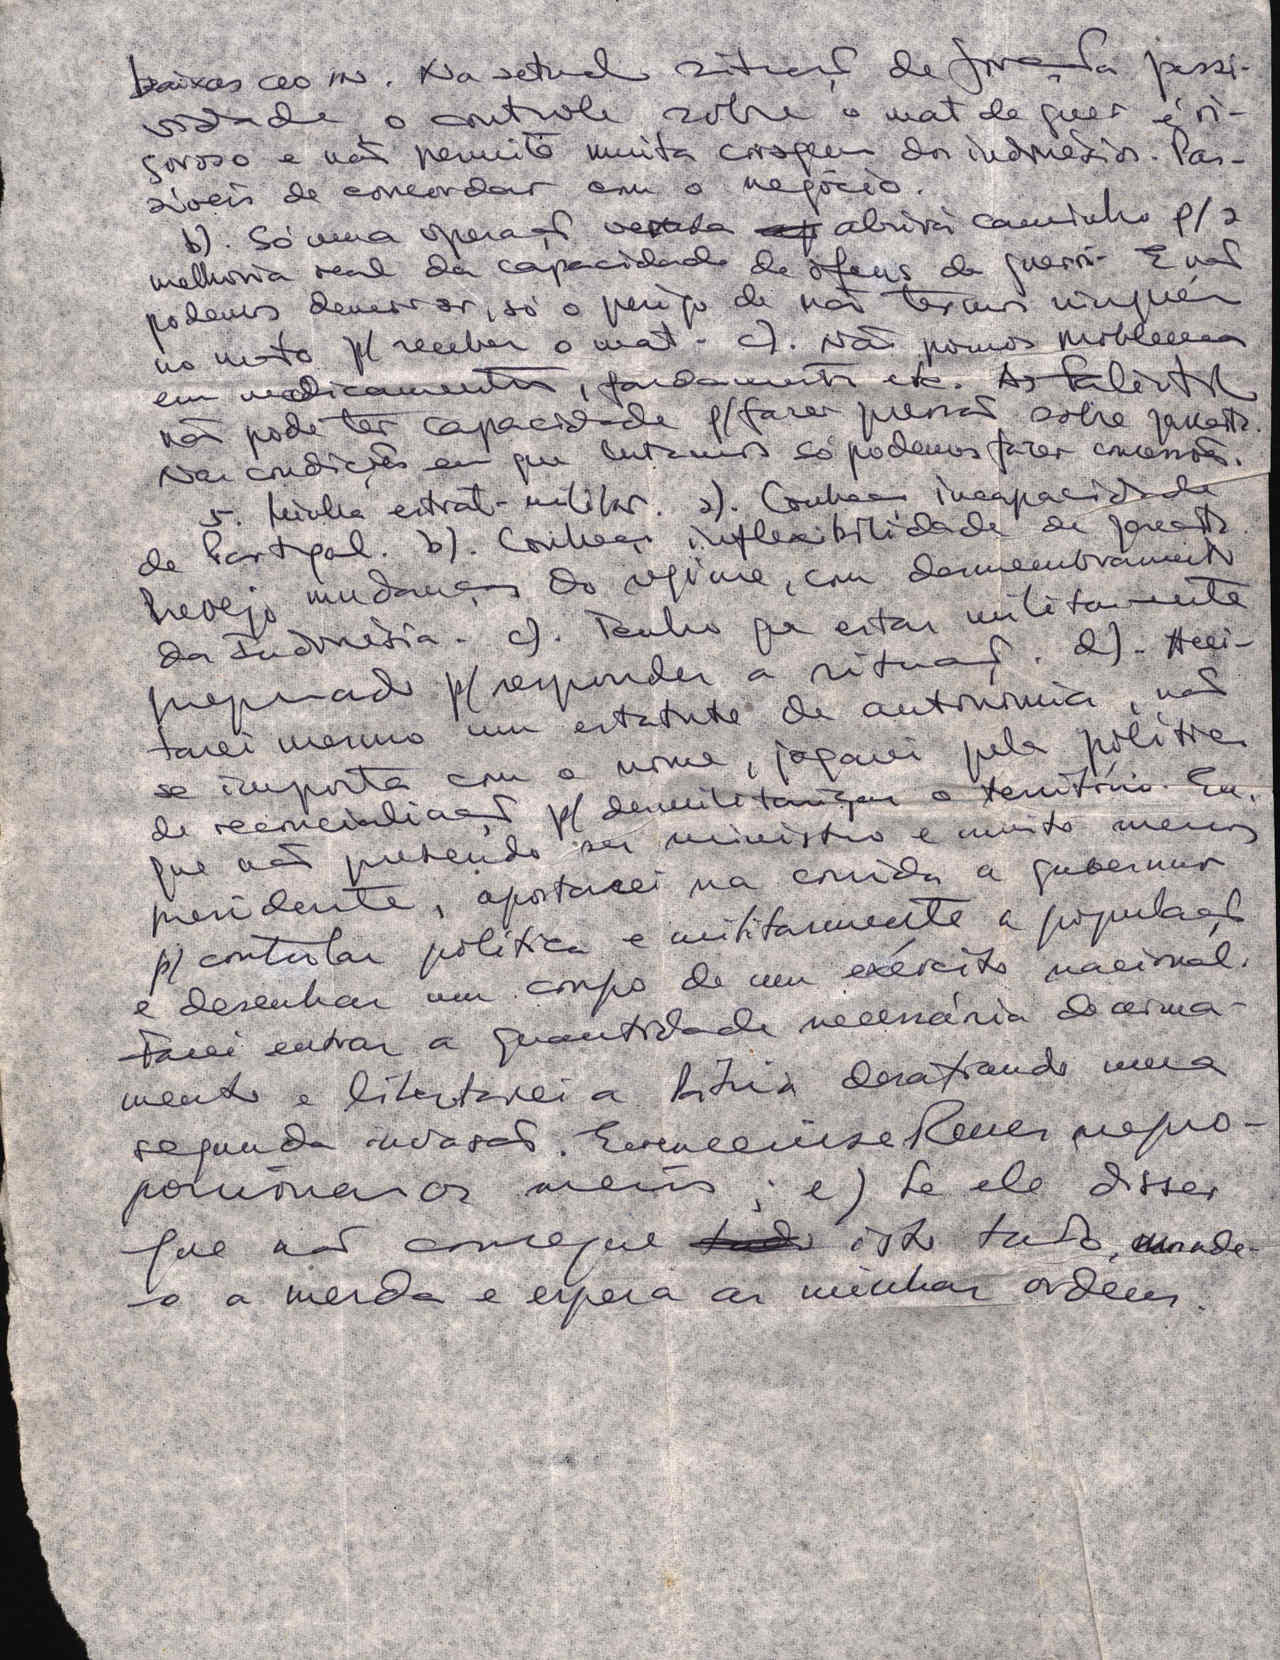 baixas ao in. Na actual situaçã de forçada passi-
vidade o controle sobre o mat de guer é ri-
goroso e nã permite muita coragem dos indonésios. Pas-
síveis de concordar com o negócio.
b). Só uma operaçã abrirá caminho p/ a
melhoria real da capacidade de ofens de guerri- E nã
podemos demorar, só o perigo de nã termos ninguém
no mato p/ receber o mat- c). Nã pomos problemas
em medicamentos, fardamento etc.
nã pode ter capacidade p/ fazer pressã sobre Jakarta.
Nas condições em que lutamos só podemos fazer concessões.
5. Minha estrat- militar. a). Conheço incapacidade
de Portugal. b). Conheço inflexibilidade de Jakarta.
Prevejo mudanças do regime, com desmembramento
da Indonésia- c). Tenho que estar militarmente
preparado p/ responder a situaçã. d). Acei-
tarei mesmo um estatuto de autonomia, nã
se importa com o nome, jogarei pela política
de reconciliaçã p/ demilitarizar o território. Eu,
que nã pretendo ser ministro e muito menos
presidente, apostarei na corrida a governar
p/ controlar política e militarmente a populaçã
e desenhar um corpo de um exército nacional.
Farei entrar a quantidade necessária de arma-
mento e libertarei a Pátria desafiando uma
segunda invasã. Ramos pro-
porcionar os meios; e) Se ele disser
que nã consegue isto tudo, mande-
-o a merda e espera as minhas ordens.